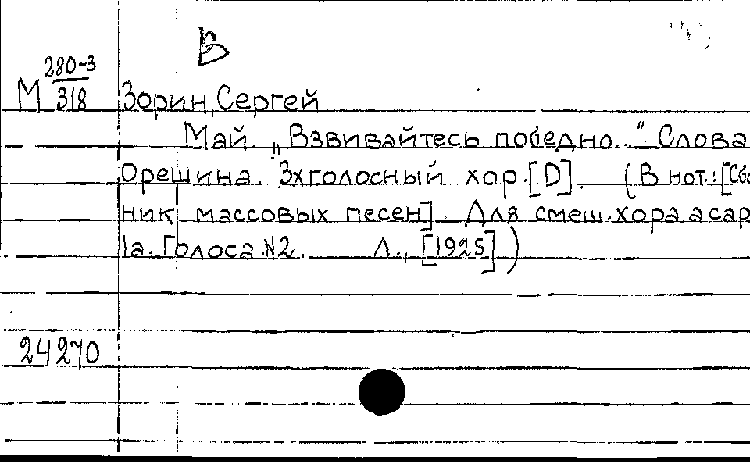 В
М 280-3/318 Зорин, Сергей
Май. „Взвивайтесь победно.." Слова
Орешина. 3хголосный хор. [D]. (В нот.: [Сбо
ник массовых песен]. Для смеш. хора a cap
1а. Голоса №2. Л., [1925])
24270